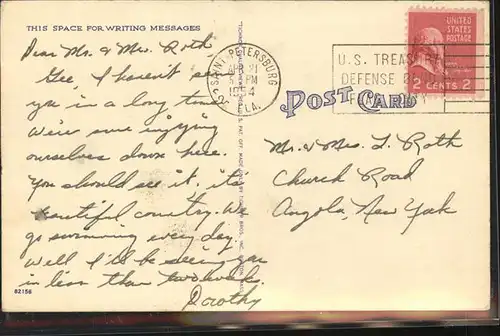 THIS SPACE FOR WRITING MESSAGES
Dear Mr. & Mrs. Roth
Gee, I haven't seen
you in a long time
We're sure enjoying
ourselves down here.
You should see it, it's
beautiful country. We
go swimming every day.
Well I'll be seeing you
in less than two weeks.
Dorothy
82156
SAINT PETERSBURG
FLA.
U.S. TREASURY
DEFENSE
UNITED
STATES
POSTAGE
2 CENTS 2
POST CARD
Mr. & Mrs. L. Roth
Church Road
Angola, New York